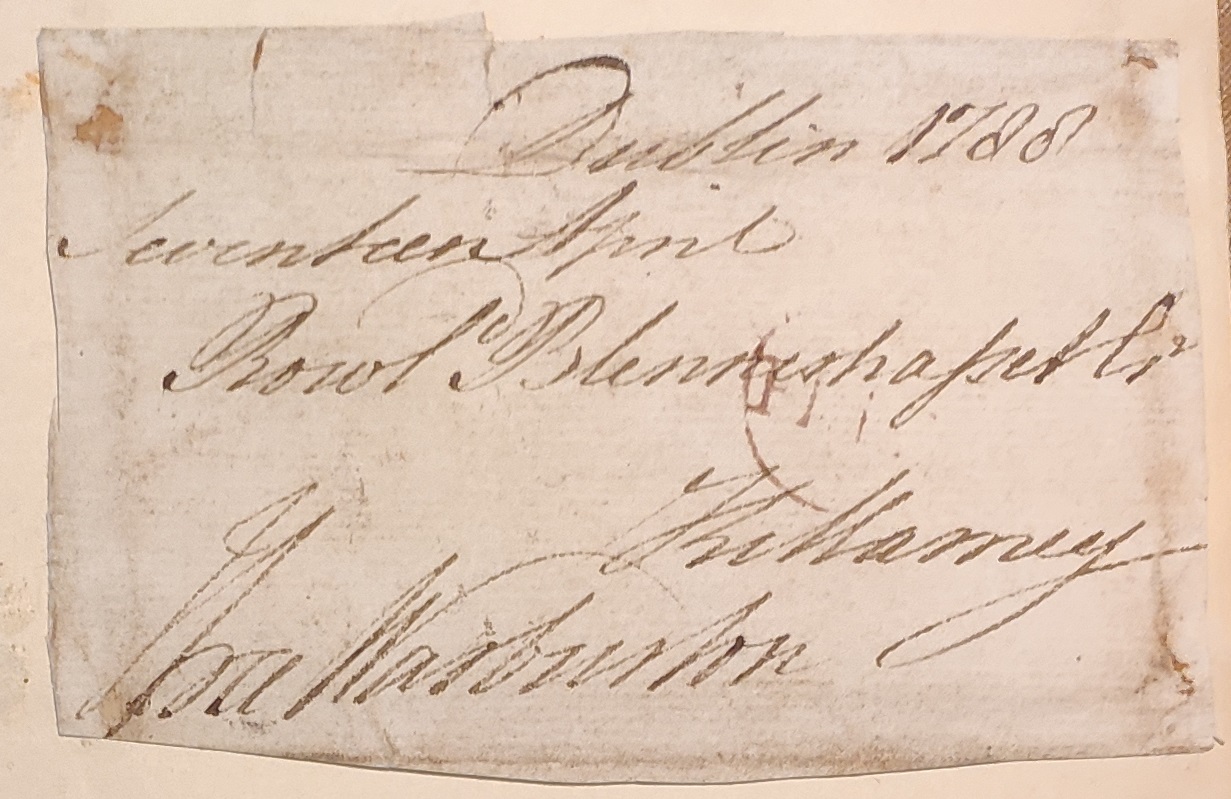 Dublin 1788
Seventeen April
Rowld Blennerhasset Esqr
Killarney
Warburton